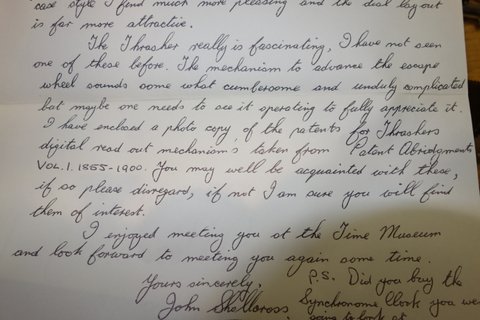 case style I find much more pleasing and the dial layout
is far more attractive.
The Thrasher really is fascinating, I have not seen
one of these before. The mechanism to advance the escape
wheel sounds some what cumbersome and unduly complicated
but maybe one needs to see it operating to fully appreciate it.
I have enclosed a photo copy of the patents for Thrashers
digital read out mechanisms taken from Patent Abridgments
VOL.1. 1855-1900. You may well be acquainted with these,
if so please disregard, if not I am sure you will find
them of interest.
I enjoyed meeting you at the Time Museum
and look forward to meeting you again some time.
Yours sincerely, P.S. Did you buy the
John Shellcross Synchronome Clock you we
going to look at